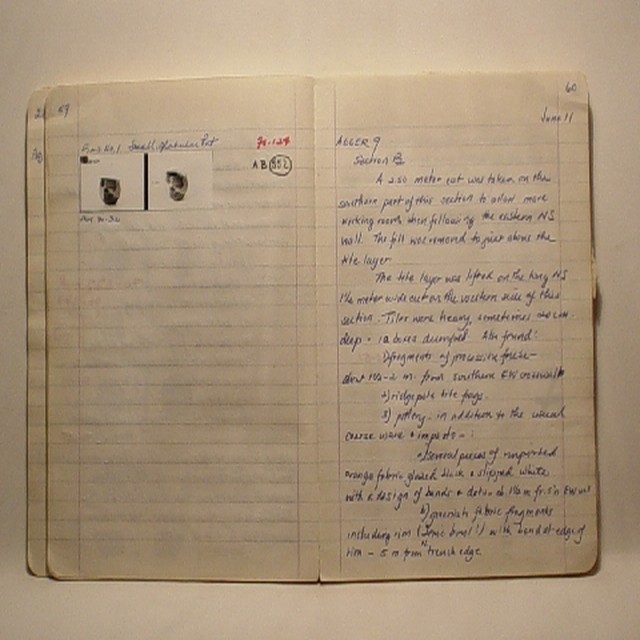 59
Find No. 1 Small Pot
71-124
AB 552
60
June 11
ALGER 9
Section B
A 2.50 meter cut was taken on the
southern part of this section to allow more
working room when following the eastern NS
wall. The fill was removed to just above the
tile layer.
The tile layer was lifted on the long NS
meter wide cut on the western side of this
section. Tiles were heavy, sometimes 20 cm.
deep - 12 boxes dumped. Also found:
1) fragments of procession frieze -
about 1.00-2 m. from southern EW crosswall
2) ridgepole tile frags.
3) pottery - in addition to the usual
coarse ware + impasto - :
a) several pieces of
orange fabric glazed black + slipped white
with a design of bands + dots - at m fr. S'n EW wall
b) greenish fabric fragments
including rim (Ionic bowl?) with band at edge of
rim - 5 m from N trench edge